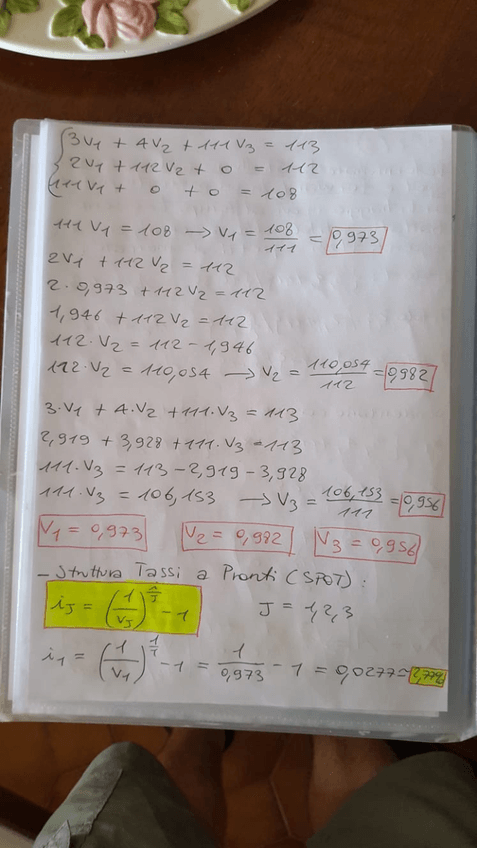 3V1 + 4V2 + 111V3 = 113
2V1 + 112V2 + 0 = 112
111V1 + 0 + 0 = 108
111V1 = 108 → V1 = 108/111 = 0,973
2V1 + 112V2 = 112
2 · 0,973 + 112V2 = 112
1,946 + 112V2 = 112
112·V2 = 112 - 1,946
112·V2 = 110,054 → V2 = 110,054/112 = 0,982
3·V1 + 4·V2 + 111·V3 = 113
2,919 + 3,928 + 111·V3 = 113
111·V3 = 113 - 2,919 - 3,928
111·V3 = 106,153 → V3 = 106,153/111 = 0,956
V1 = 0,973 V2 = 0,982 V3 = 0,956
- Struttura Tassi a Pronti (SPOT):
iJ = (1/VJ)^(1/J) - 1 J = 1,2,3
i1 = (1/V1)^(1/1) - 1 = 1/0,973 - 1 = 0,0277 = 2,77%